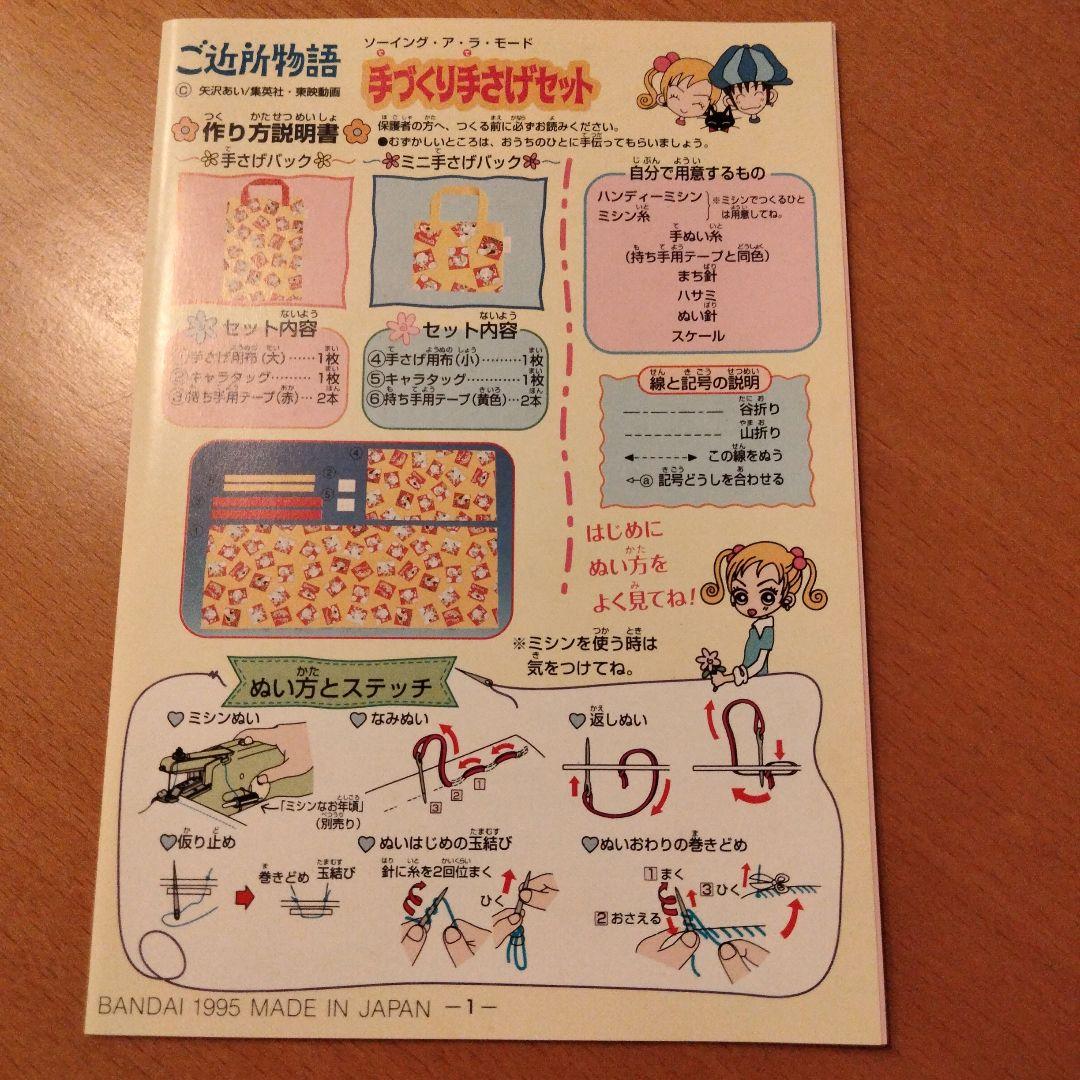 ご近所物語
© 矢沢あい/集英社・東映動画
ソーイング・ア・ラ・モード
手づくり手さげセット
作り方説明書
保護者の方へ、つくる前に必ずお読みください。
●むずかしいところは、おうちのひとに手伝ってもらいましょう。
手さげバック
ミニ手さげバック
セット内容
①手さげ用布(大)……1枚
②キャラタッグ………1枚
③持ち手用テープ(赤)…2本
セット内容
④手さげ用布(小)………1枚
⑤キャラタッグ…………1枚
⑥持ち手用テープ(黄色)…2本
自分で用意するもの
ハンディーミシン
ミシン糸
※ミシンでつくるひと
は用意してね。
手ぬい糸
(持ち手用テープと同色)
まち針
ハサミ
ぬい針
スケール
線と記号の説明
谷折り
山折り
この線をぬう
ⓐ 記号どうしを合わせる
④
②
⑤
はじめに
ぬい方を
よく見てね!
※ミシンを使う時は
気をつけてね。
ぬい方とステッチ
ミシンぬい
「ミシンなお年頃」
(別売り)
なみぬい
3 2 1
返しぬい
仮り止め
巻きどめ 玉結び
ぬいはじめの玉結び
針に糸を2回位まく
ひく
ぬいおわりの巻きどめ
1 まく
2 おさえる
3 ひく
BANDAI 1995 MADE IN JAPAN －1－